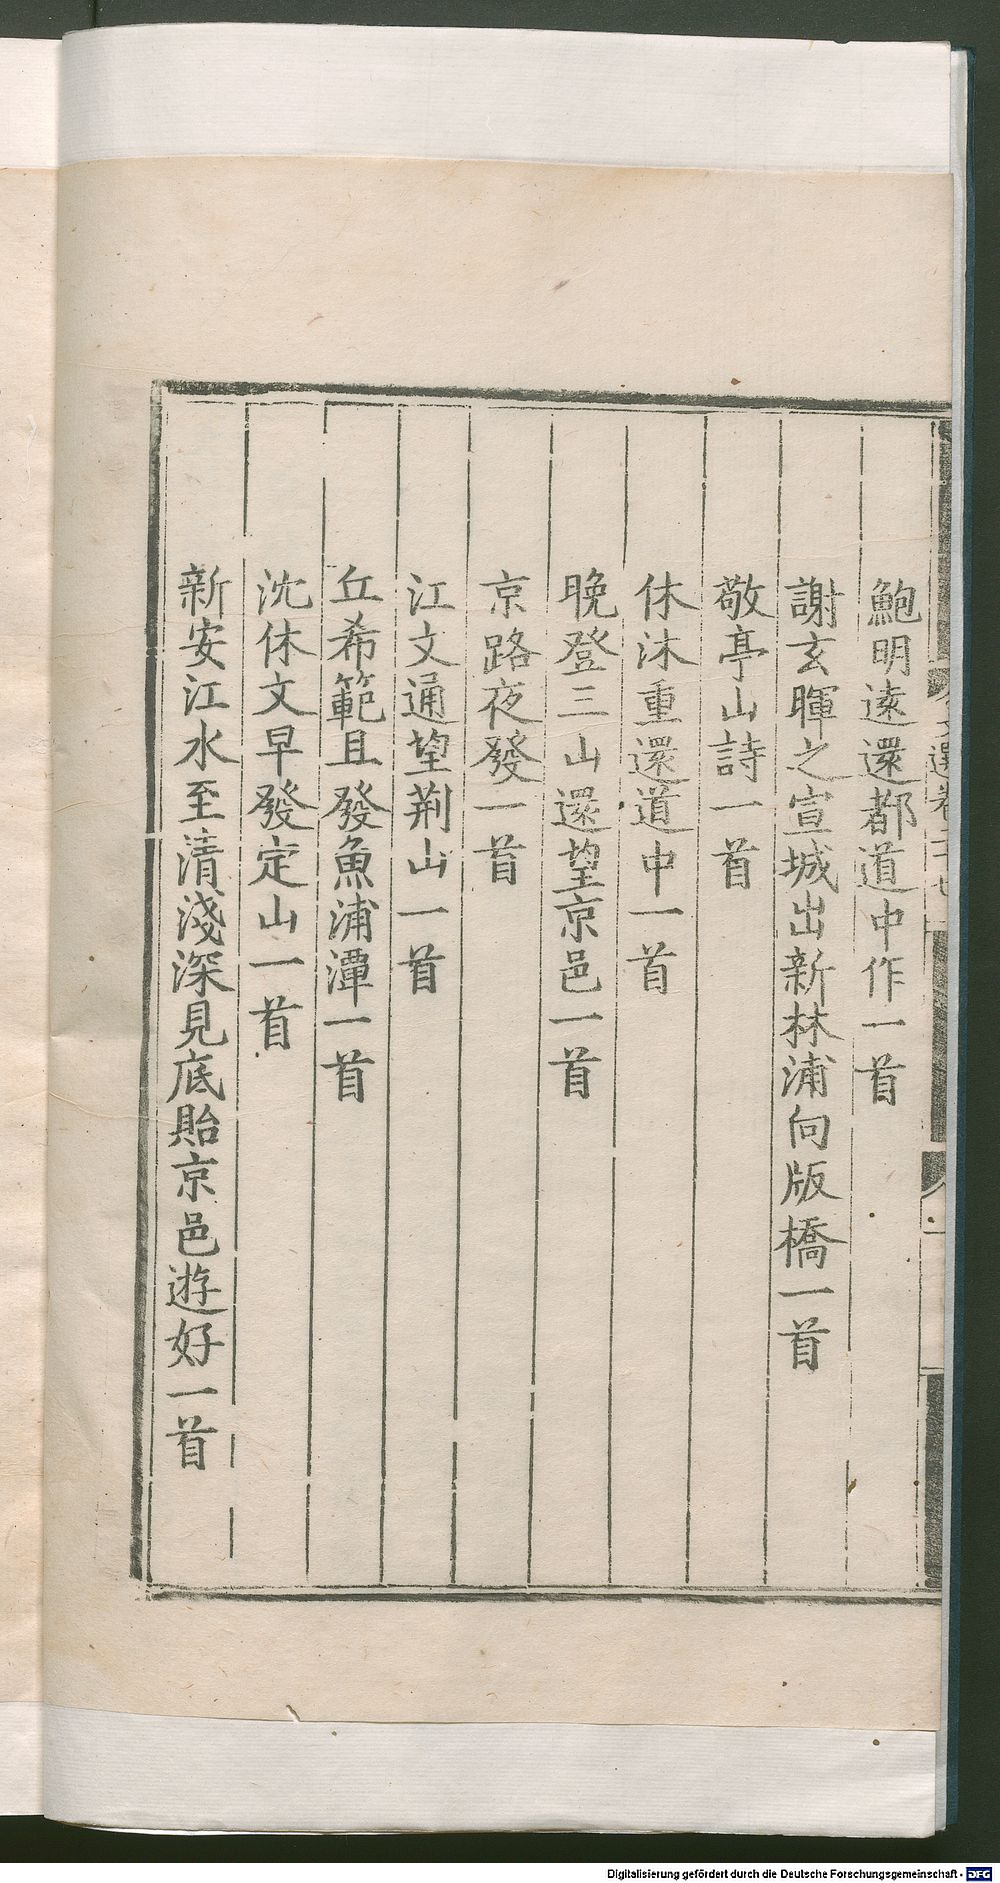 文選卷二十七
鮑明遠還都道中作一首
謝玄暉之宣城出新林浦向版橋一首
敬亭山詩一首
休沐重還道中一首
晚登三山還望京邑一首
京路夜發一首
江文通望荆山一首
丘希範旦發魚浦潭一首
沈休文早發定山一首
新安江水至清淺深見底貽京邑遊好一首
Digitalisierung gefördert durch die Deutsche Forschungsgemeinschaft - DFG